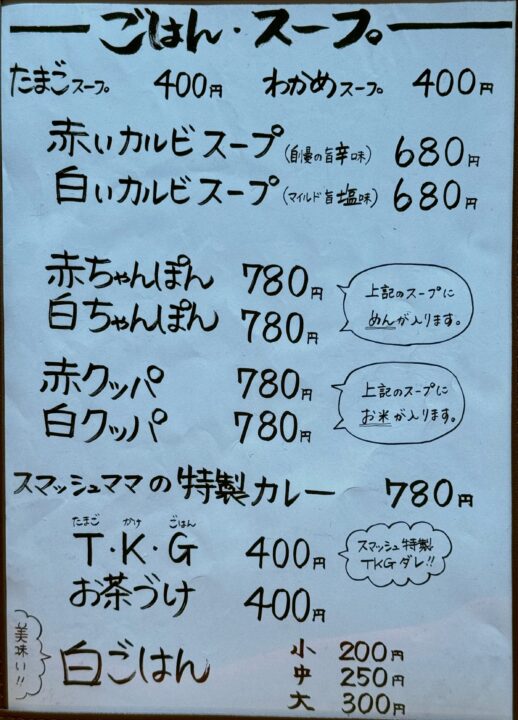 ごはん・スープ
たまごスープ 400円 わかめスープ 400円
赤いカルビスープ(自慢の旨辛味) 680円
白いカルビスープ(マイルド旨塩味) 680円
赤ちゃんぽん 780円
白ちゃんぽん 780円
上記のスープに
めんが入ります。
赤クッパ 780円
白クッパ 780円
上記のスープに
お米が入ります。
スマッシュママの特製カレー 780円
たまご かけ ごはん
T・K・G 400円
スマッシュ特製
TKGダレ!!
お茶づけ 400円
美味い!!
白ごはん 小 200円
中 250円
大 300円